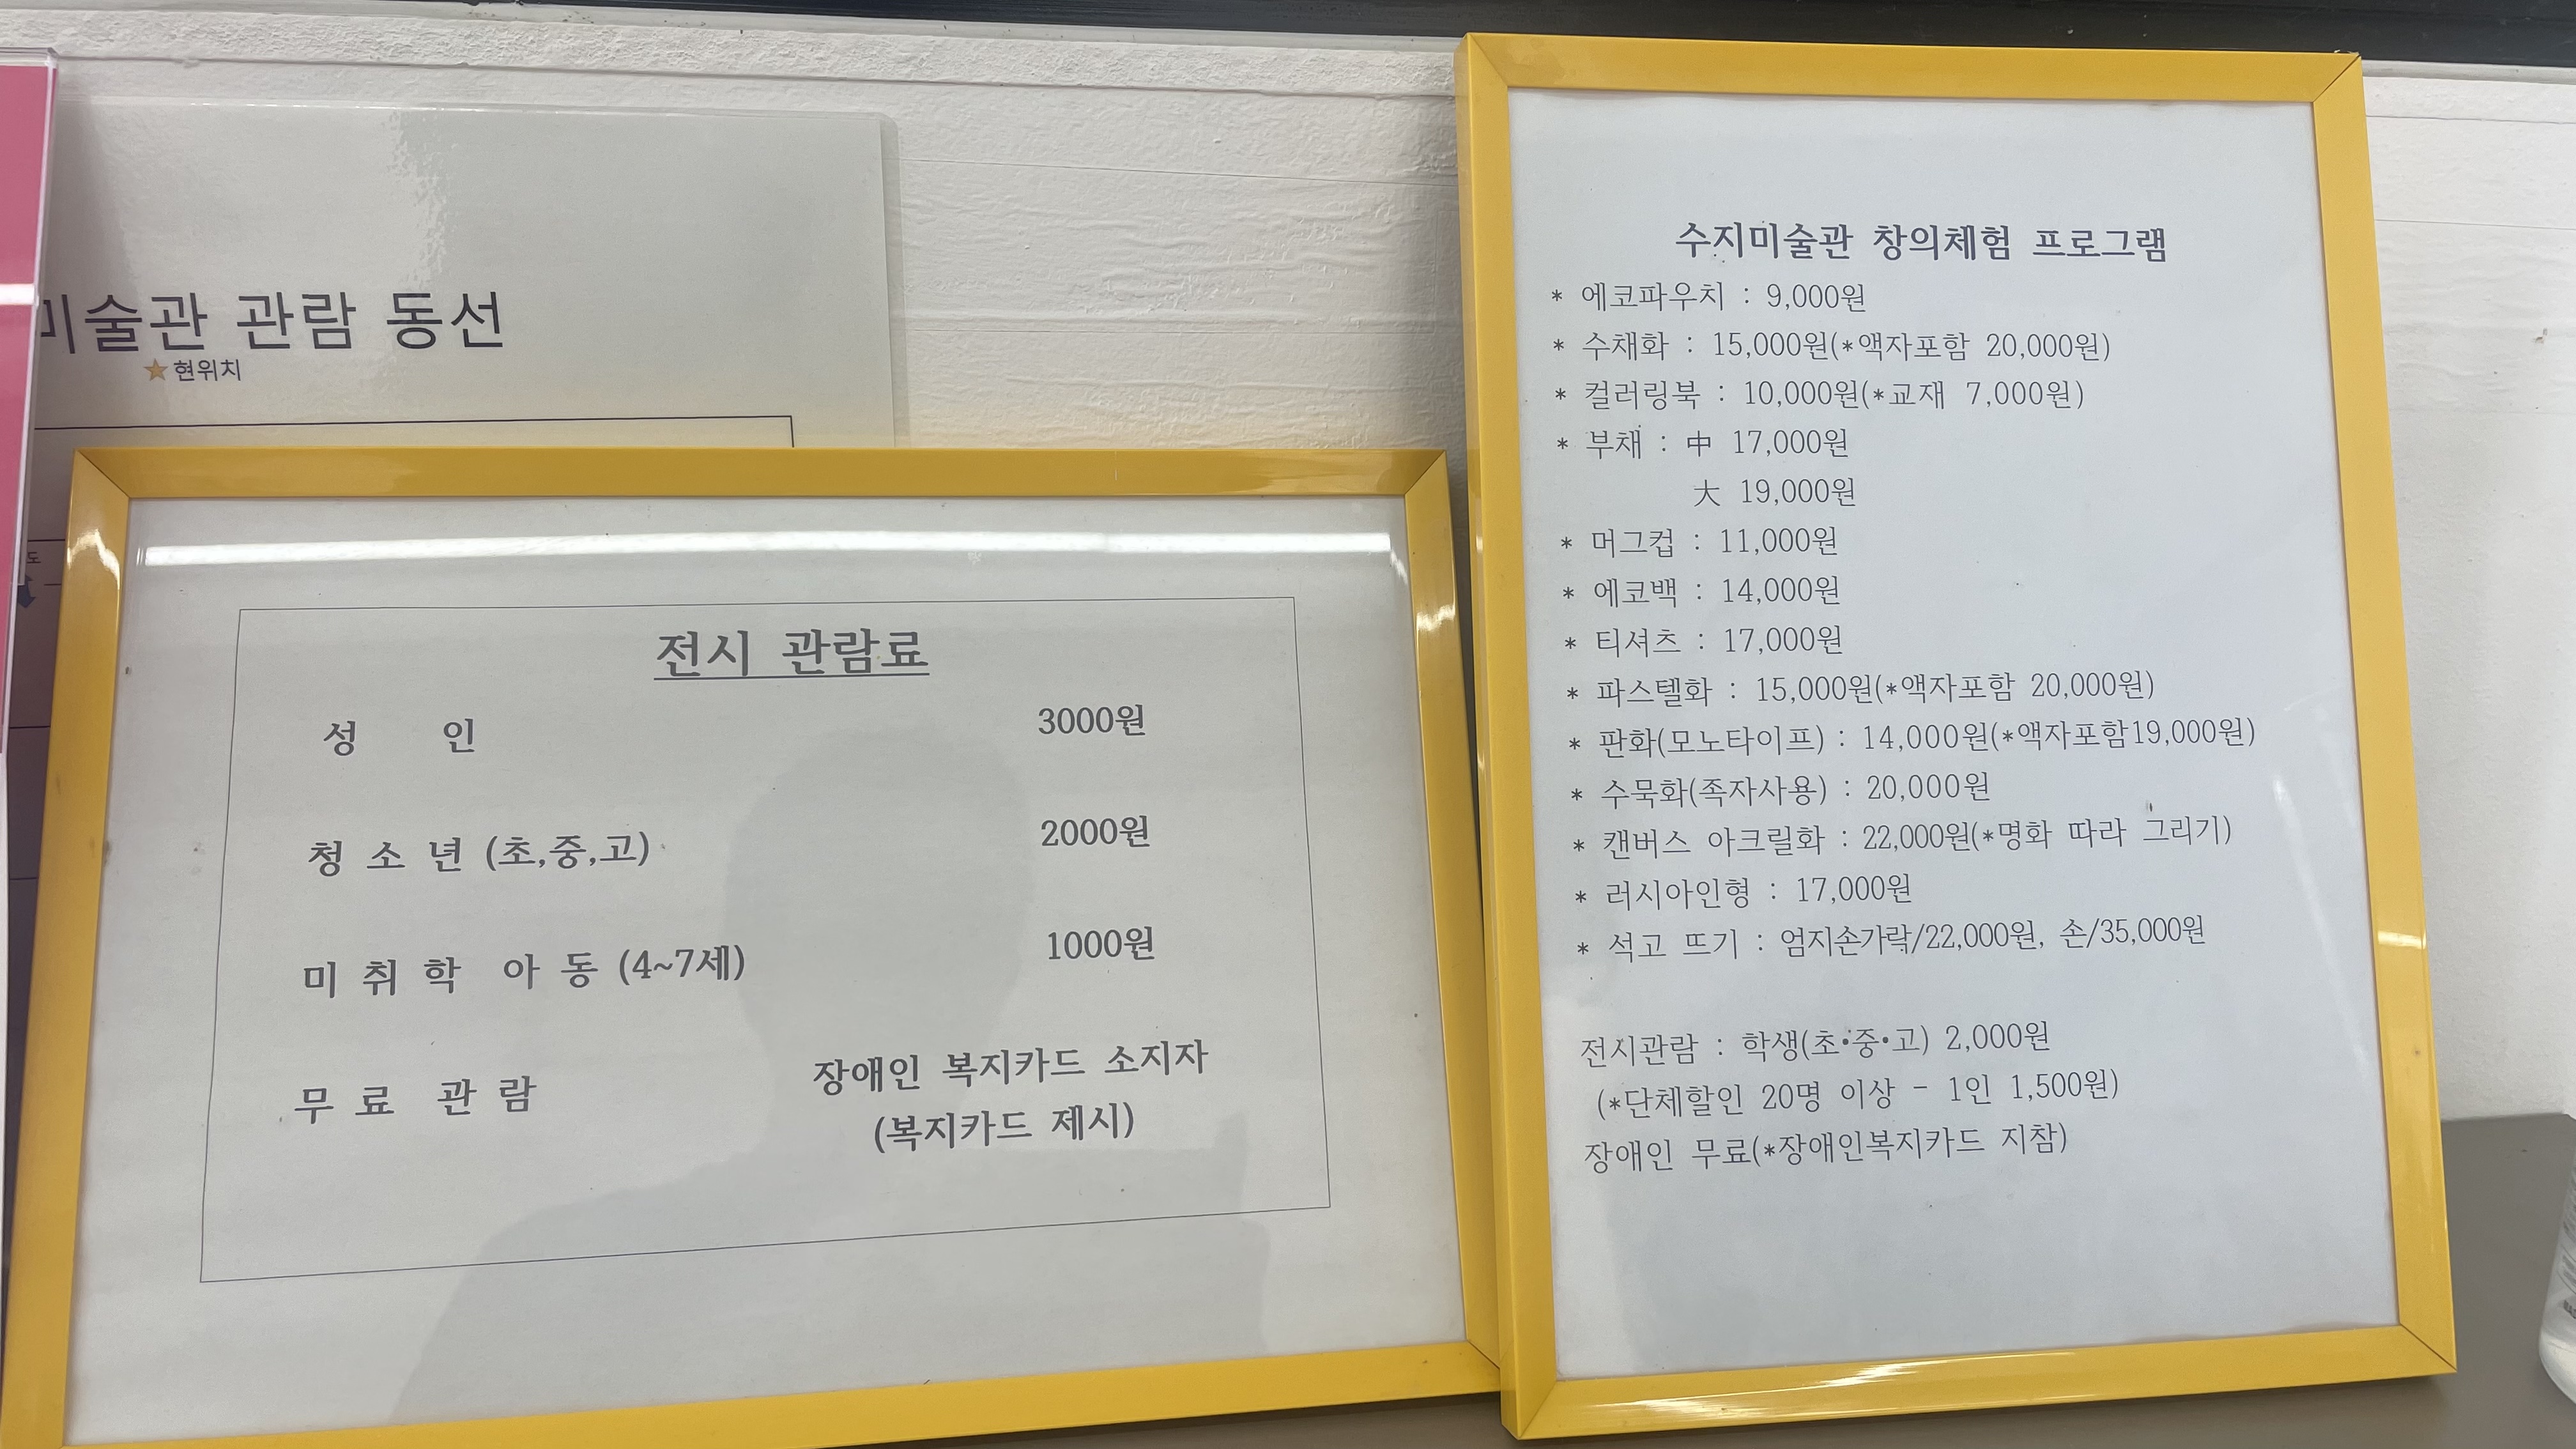 미술관 관람 동선
★현위치
도
전시 관람료
성 인 3000원
청 소 년 (초,중,고) 2000원
미 취 학 아 동 (4~7세) 1000원
무 료 관 람 장애인 복지카드 소지자
(복지카드 제시)
수지미술관 창의체험 프로그램
* 에코파우치 : 9,000원
* 수채화 : 15,000원(*액자포함 20,000원)
* 컬러링북 : 10,000원(*교재 7,000원)
* 부채 : 中 17,000원
大 19,000원
* 머그컵 : 11,000원
* 에코백 : 14,000원
* 티셔츠 : 17,000원
* 파스텔화 : 15,000원(*액자포함 20,000원)
* 판화(모노타이프) : 14,000원(*액자포함19,000원)
* 수묵화(족자사용) : 20,000원
* 캔버스 아크릴화 : 22,000원(*명화 따라 그리기)
* 러시아인형 : 17,000원
* 석고 뜨기 : 엄지손가락/22,000원, 손/35,000원
전시관람 : 학생(초•중•고) 2,000원
(*단체할인 20명 이상 - 1인 1,500원)
장애인 무료(*장애인복지카드 지참)